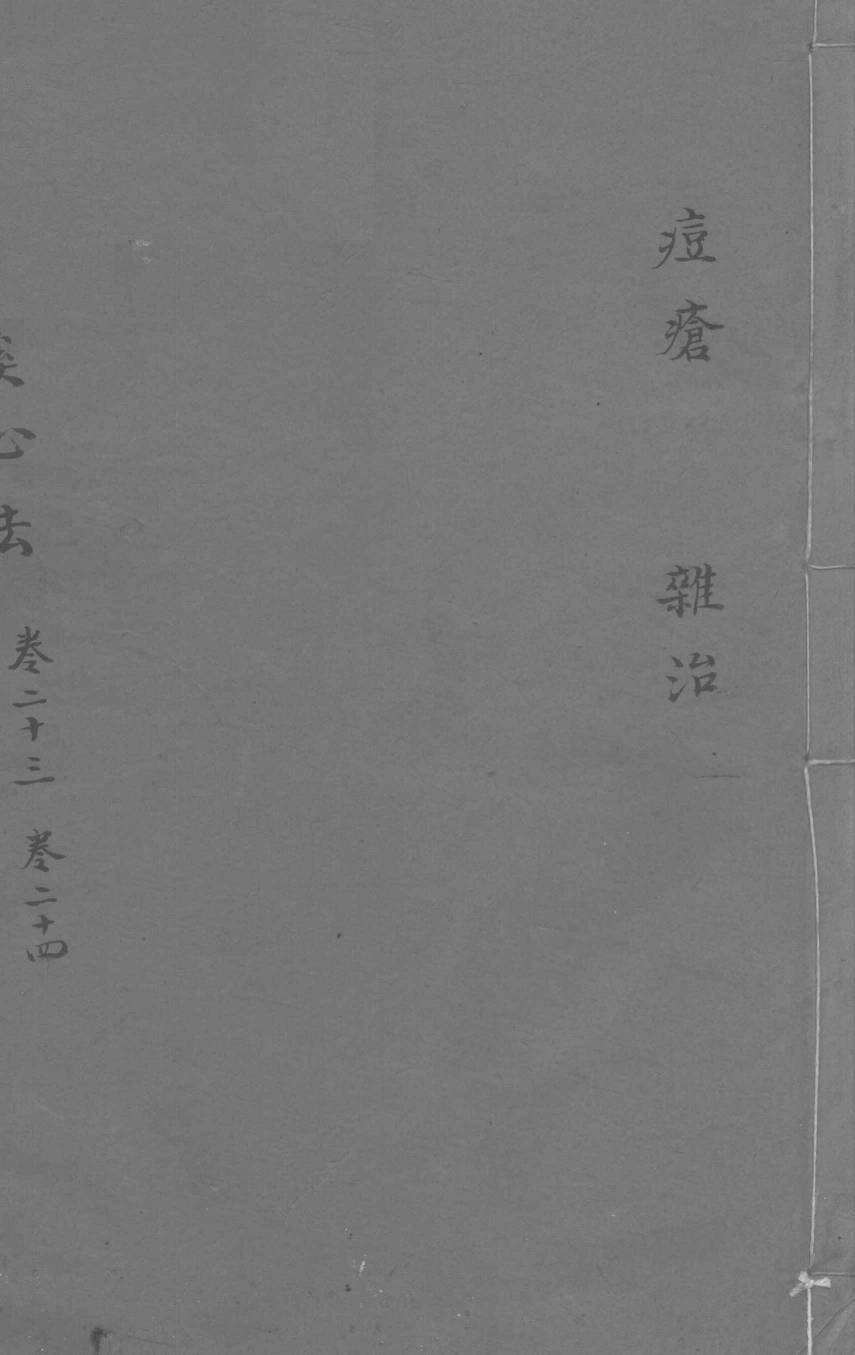 痘瘡　雜治
心法　卷二十三　卷二十四